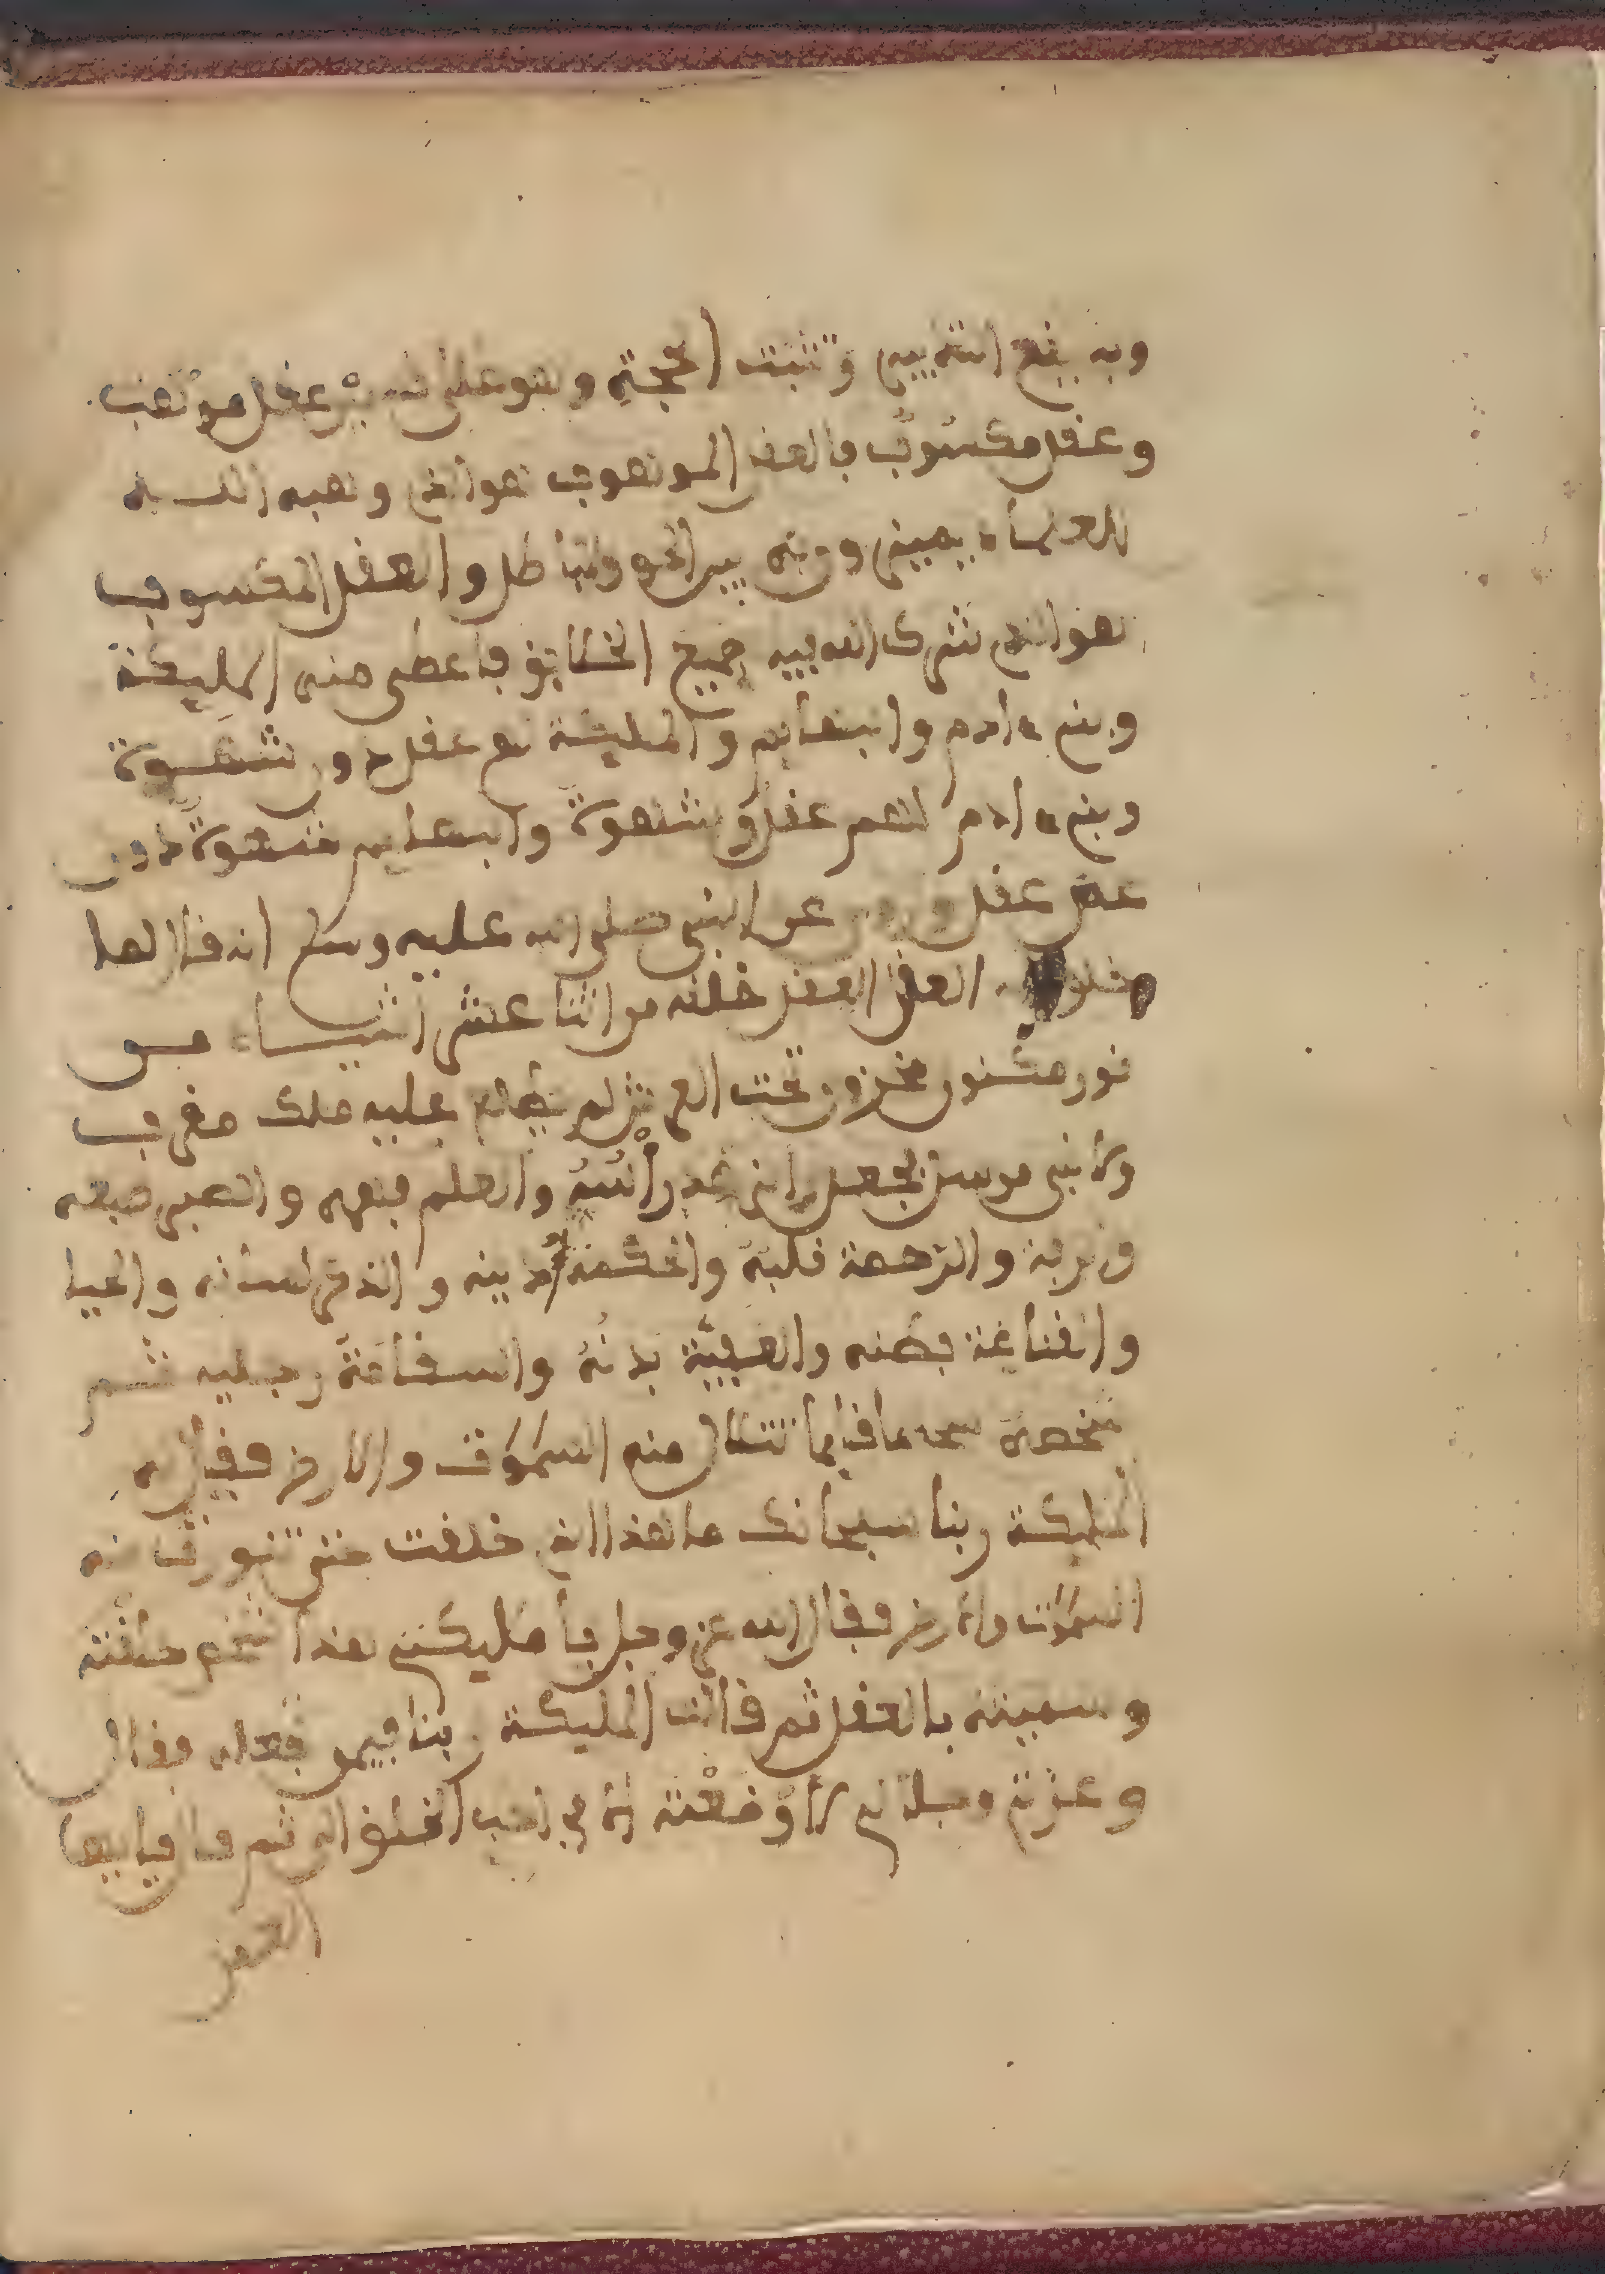 وبه يقع التمييز وتثبت الحجة وهو على ضربين عقل موهب
وعقل مكسوب فالعقل الموهوب هو الذي وهبه الله
للعلماء يميزون به بين الحق والباطل والعقل المكسوب
هو الذي شرك الله فيه جميع الخلايق فاعطى منه المليكة
وبني ءادم والبهايم والمليكة لهم عقل دون شهوة
وبني ءادم لهم عقل وشهوة والبهايم شهوة دون
عقل وروي عن النبي صلى الله عليه وسلم انه قال لما
خلق الله العقل خلقه من اثنا عشر اشياء من
نور مكنون مخزون تحت العرش لم يطلع عليه ملك مقرب
ولا نبي مرسل فجعل راسه والعلم فهمه والصبر
والرحمة قلبه والحكمة دينه والذكر لسانه والحيا
والقناعة بطنه والهيبة بدنه والشفاعة رجليه ثم
منه السموت والارض فقيل له
المليكة ربنا سبحانك ما هذا الذي خلقت حتى تنورت به
السموت والارض فقال الله عز وجل يا مليكتي هذا خلقته
وسميته بالعقل ثم قالت المليكة ربنا فيمن تجعله فقال
وعزتي وجلالي لا وضعته الا في احب الخلق الي ثم قال يايها
العقل